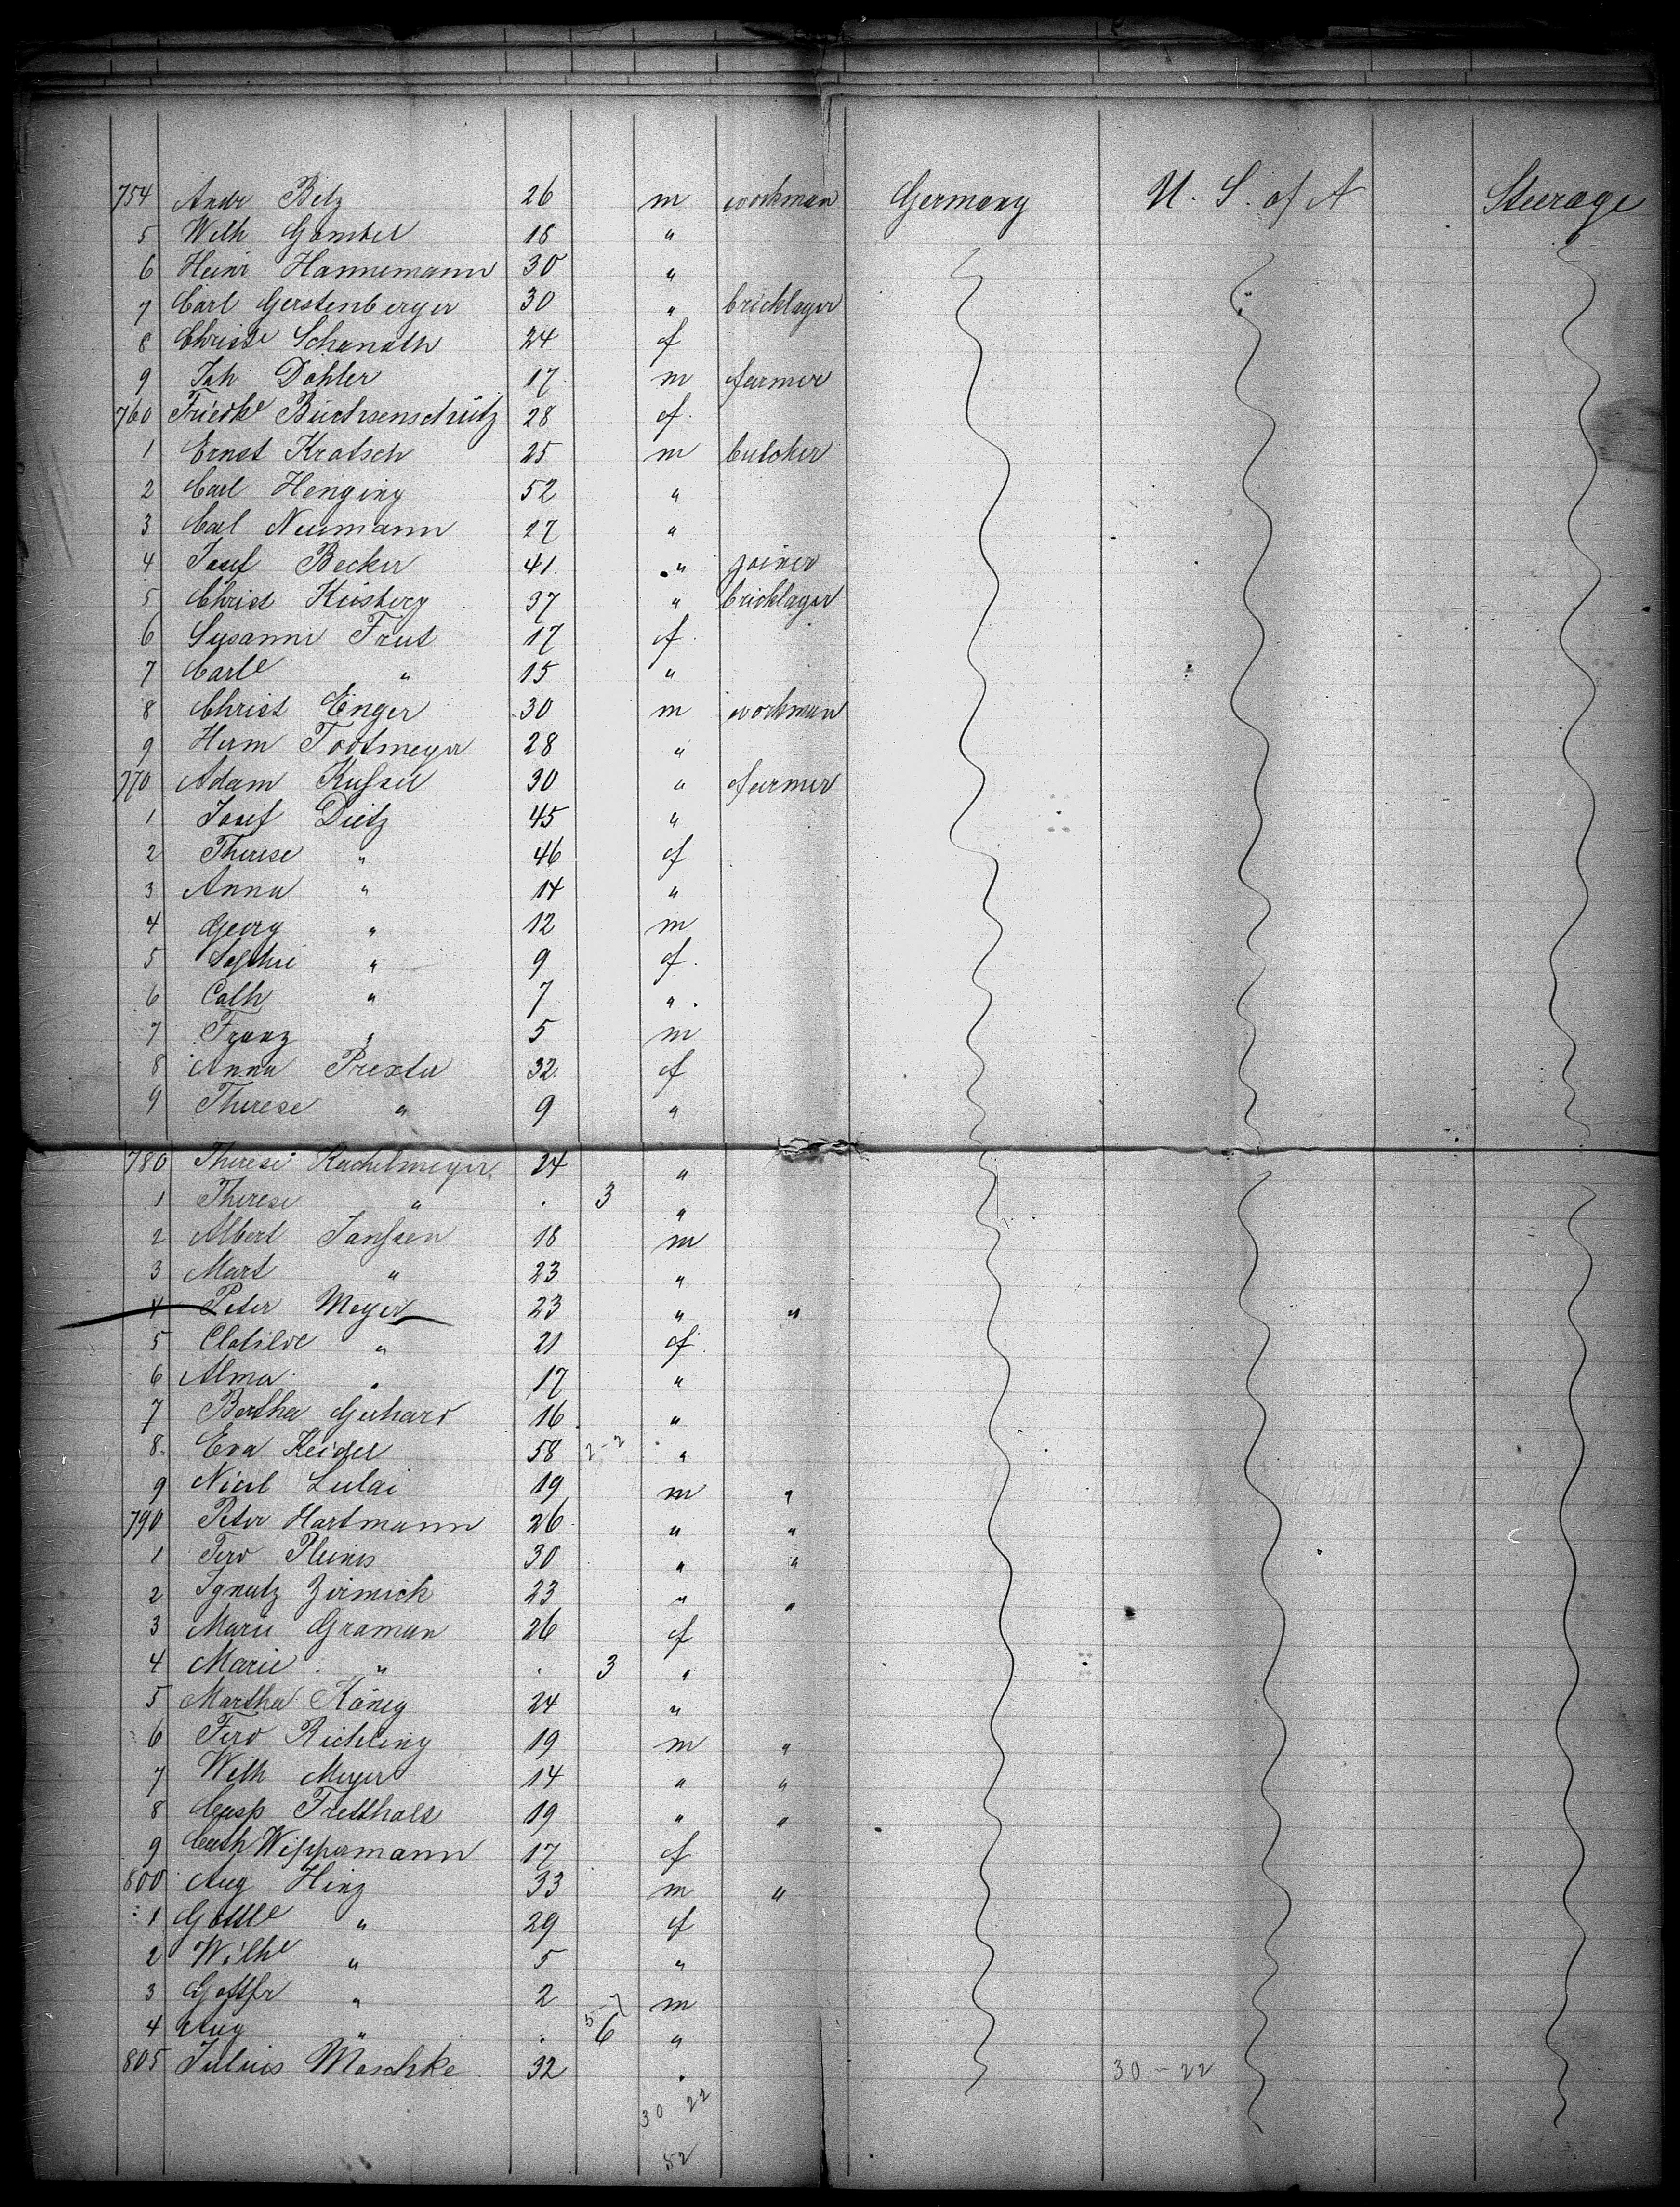 754 Andr Betz 26 m workman Germany U. S. of A Steerage
5 Wilh Gombel 18 "
6 Heinr Hannemann 30 "
7 Carl Gerstenberger 30 " bricklayer
8 Christe Schanath 24 f
9 Joh Döhler 17 m farmer
760 Friedke Büchsenschütz 28 f.
1 Ernst Kratsch 25 m butcher
2 Carl Henging 52 "
3 Carl Neumann 27 "
4 Josef Becker 41 " joiner
5 Christ Keisberg 37 " bricklayer
6 Susanne Frut 17 f.
7 Carle " 15 "
8 Christ Enger 30 m workman
9 Herm Tootmeyer 28 "
770 Adam 30 " farmer
1 Josef Dietz 45 "
2 Therese " 46 f
3 Anna " 14 "
4 Georg " 12 m
5 Sophie " 9 f.
6 Cath " 7 "
7 Franz " 5 m
8 Anna Prexter 32 f
9 Therese " 9 "
780 Therese Rachelmeyer 24 "
1 Therese " . 3 "
2 Albert Janssen 18 m
3 Mart " 23 "
4 Peter Meyer 23 " "
5 Clotilde " 21 f.
6 Alma " 17 "
7 Bertha Gerhard 16 "
8 Eva Keidel 58 2-2 "
9 Nicol Lulai 19 m "
790 Peter Hartmann 26 " "
1 Ferd Pleines 30 " "
2 Ignatz Zirmick 23 " "
3 Marie Graman 26 f
4 Marie " . 3 "
5 Martha König 24 "
6 Ferd Richling 19 m "
7 Wilh Meyer 14 " "
8 Casp Fretthold 19 " "
9 Cath Wippermann 17 f
800 Aug Hinz 33 m "
1 Gottle " 29 f
2 Wilhe " 5 "
3 Gottfr " 2 m
5-7
4 Aug " . 6 "
805 Julius Maschke 32 . 30-22
30 22
52